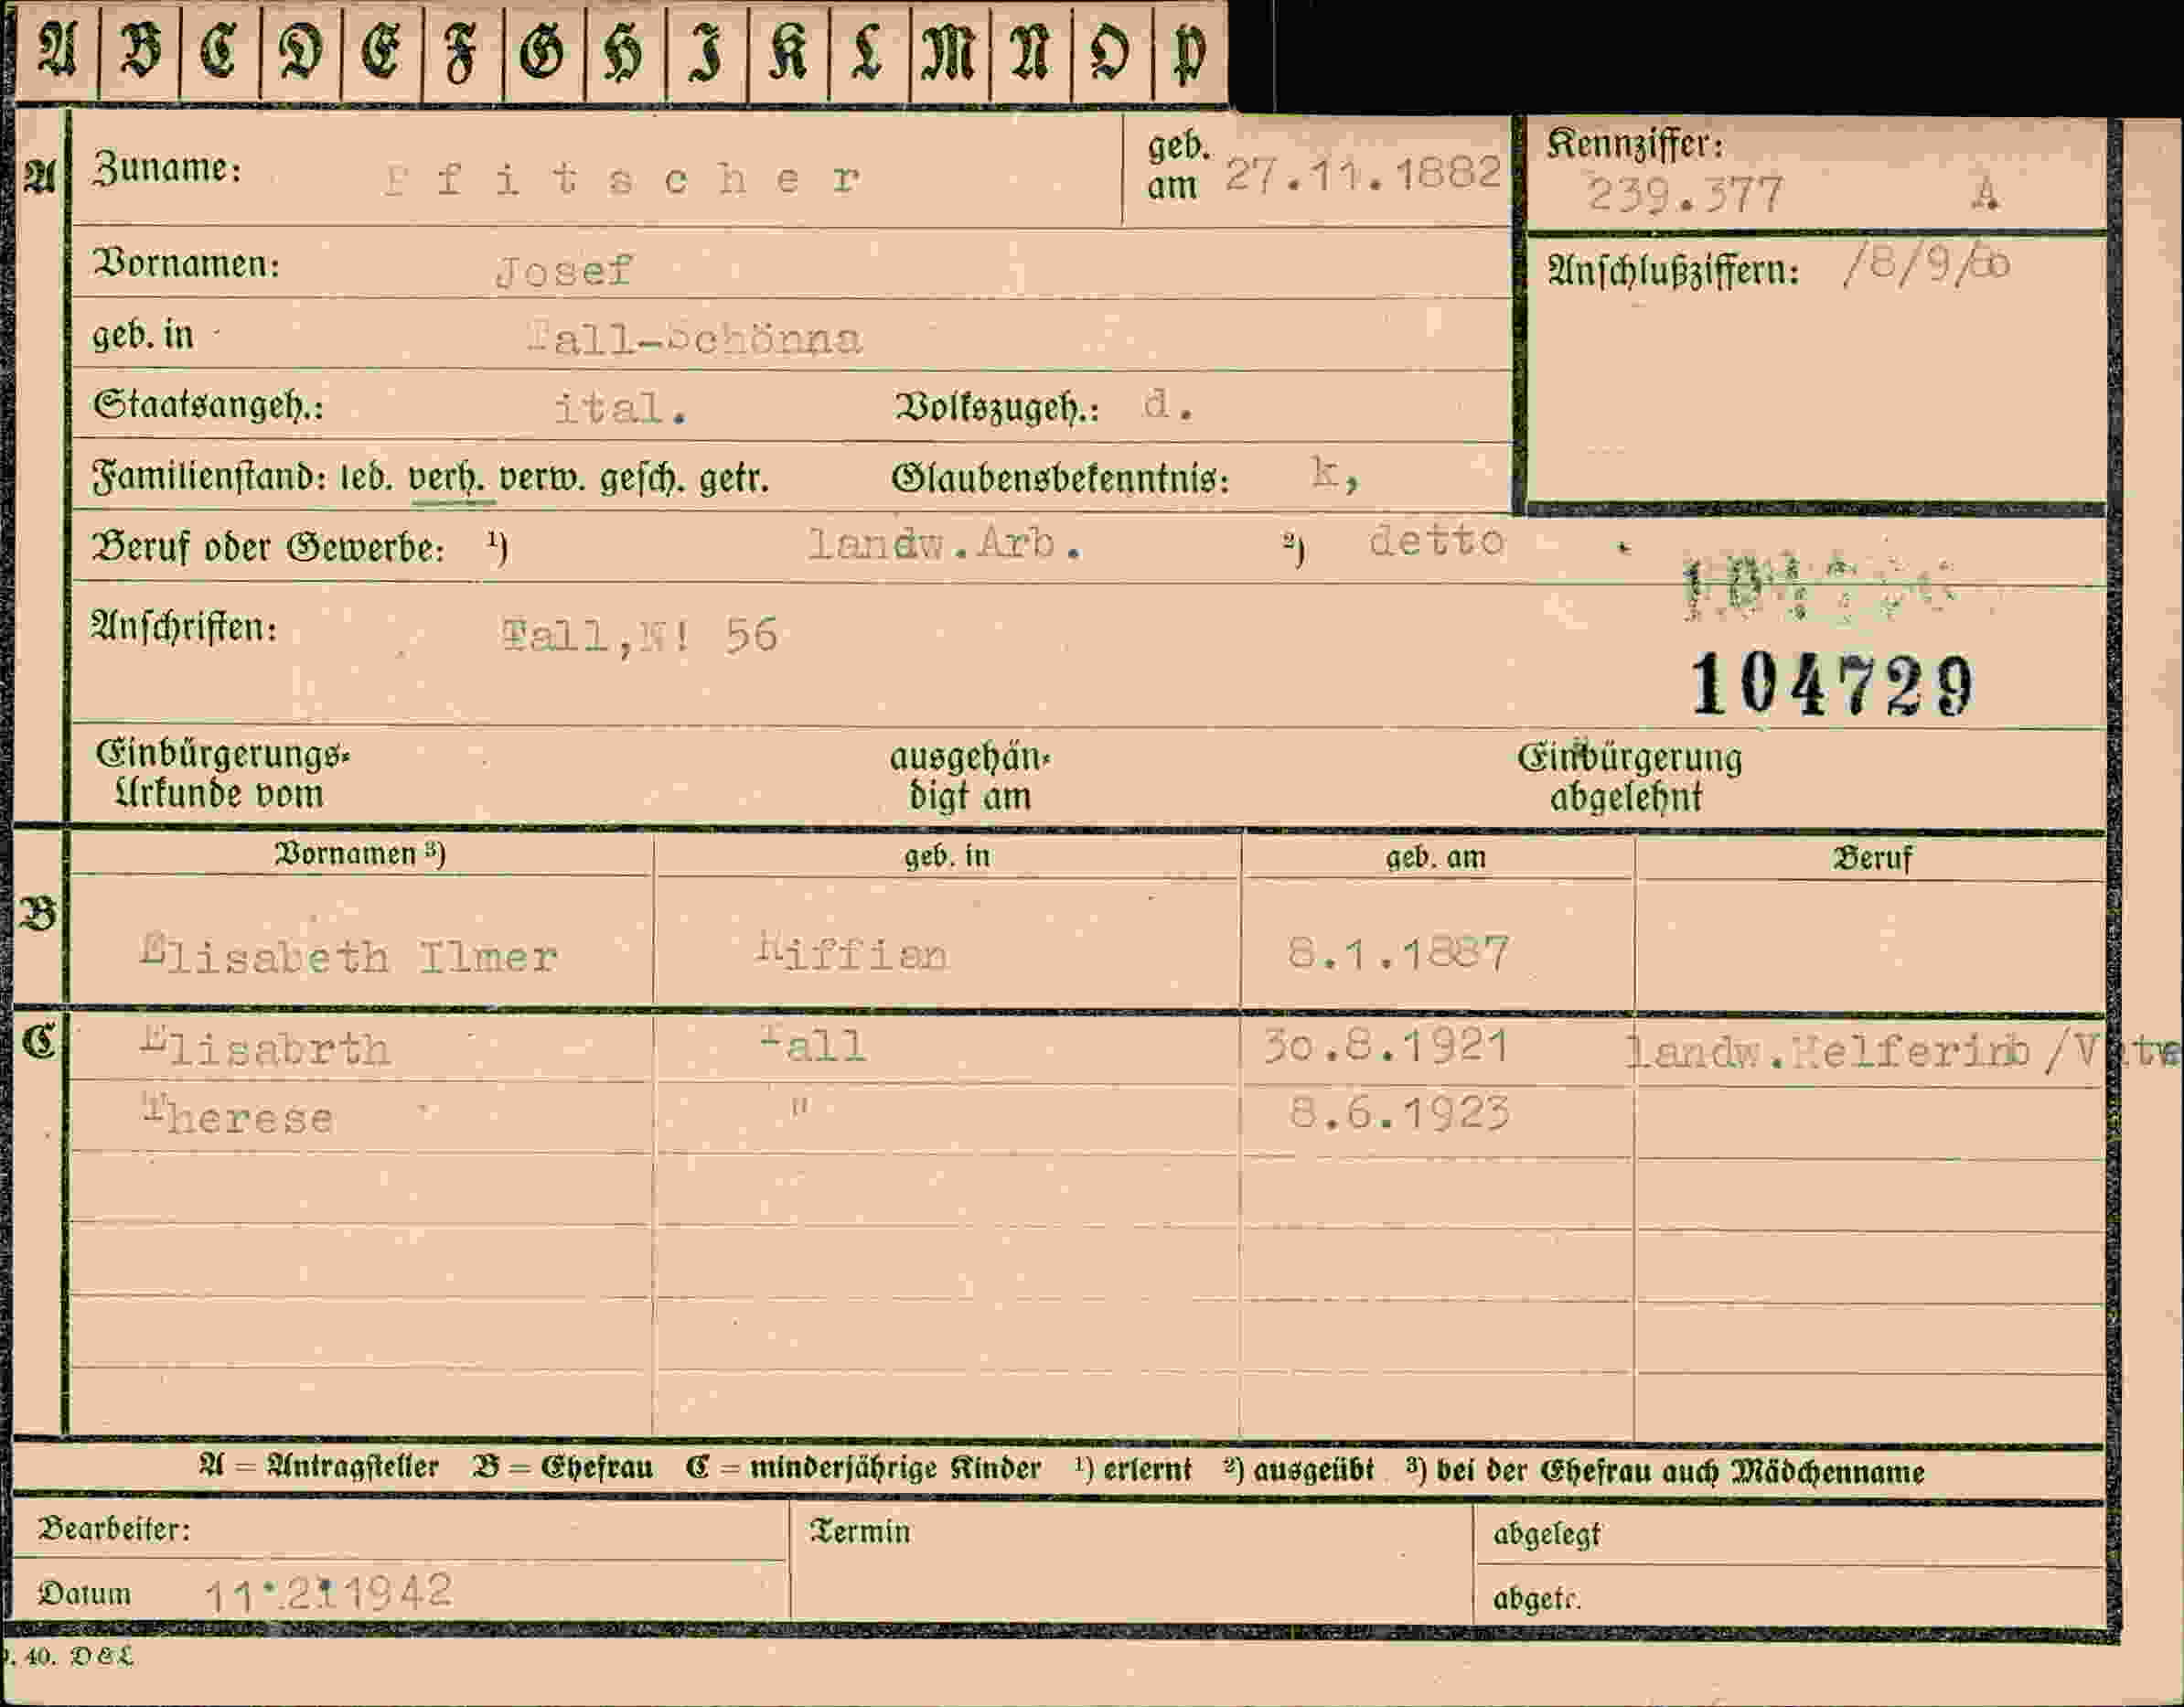 A B C D E F G H I K L M N O P
A Zuname: Pfitscher geb. am 27.11.1882 Kennziffer: 239.377 A
Vornamen: Josef Anschlußziffern: /8/9/
geb. in Tall-Schönna
Staatsangeh.: ital. Volkszugeh.: d.
Familienstand: led. verh. verw. gesch. getr. Glaubensbekenntnis: k,
Beruf oder Gewerbe: ¹) landw.Arb. ²) detto
Anschriften: Tall,N! 56
104729
Einbürgerungs- Urkunde vom ausgehän- digt am Einbürgerung abgelehnt
Vornamen ³) geb. in geb. am Beruf
B Elisabeth Ilmer Riffian 8.1.1887
C Elisabrth Tall 30.8.1921 landw.Helferin
Therese " 8.6.1923
A = Antragsteller B = Ehefrau C = minderjährige Kinder ¹) erlernt ²) ausgeübt ³) bei der Ehefrau auch Mädchenname
Bearbeiter: Termin abgelegt
Datum 11.2.1942 abgetr.
40. D & L